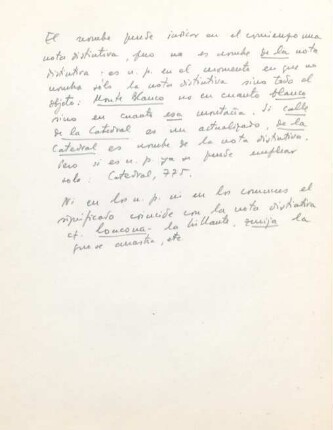 El nombre puede indicar en el comienzo una
nota distintiva, pero no es nombre de la nota
distintiva: es n. p. en el momento en que no
nombra sólo la nota distintiva sino todo el
objeto: Monte Blanco no en cuanto blanco
sino en cuanto esa montaña. Si calle
de la Catedral es un actualizado, de la
Catedral es nombre de la nota distintiva.
Pero si es n. p. ya se puede emplear
solo: Catedral, 775.
Ni en los n. p. ni en los comunes el
significado coincide con la nota distintiva
cf. la brillante, la
que se arrastra, etc.